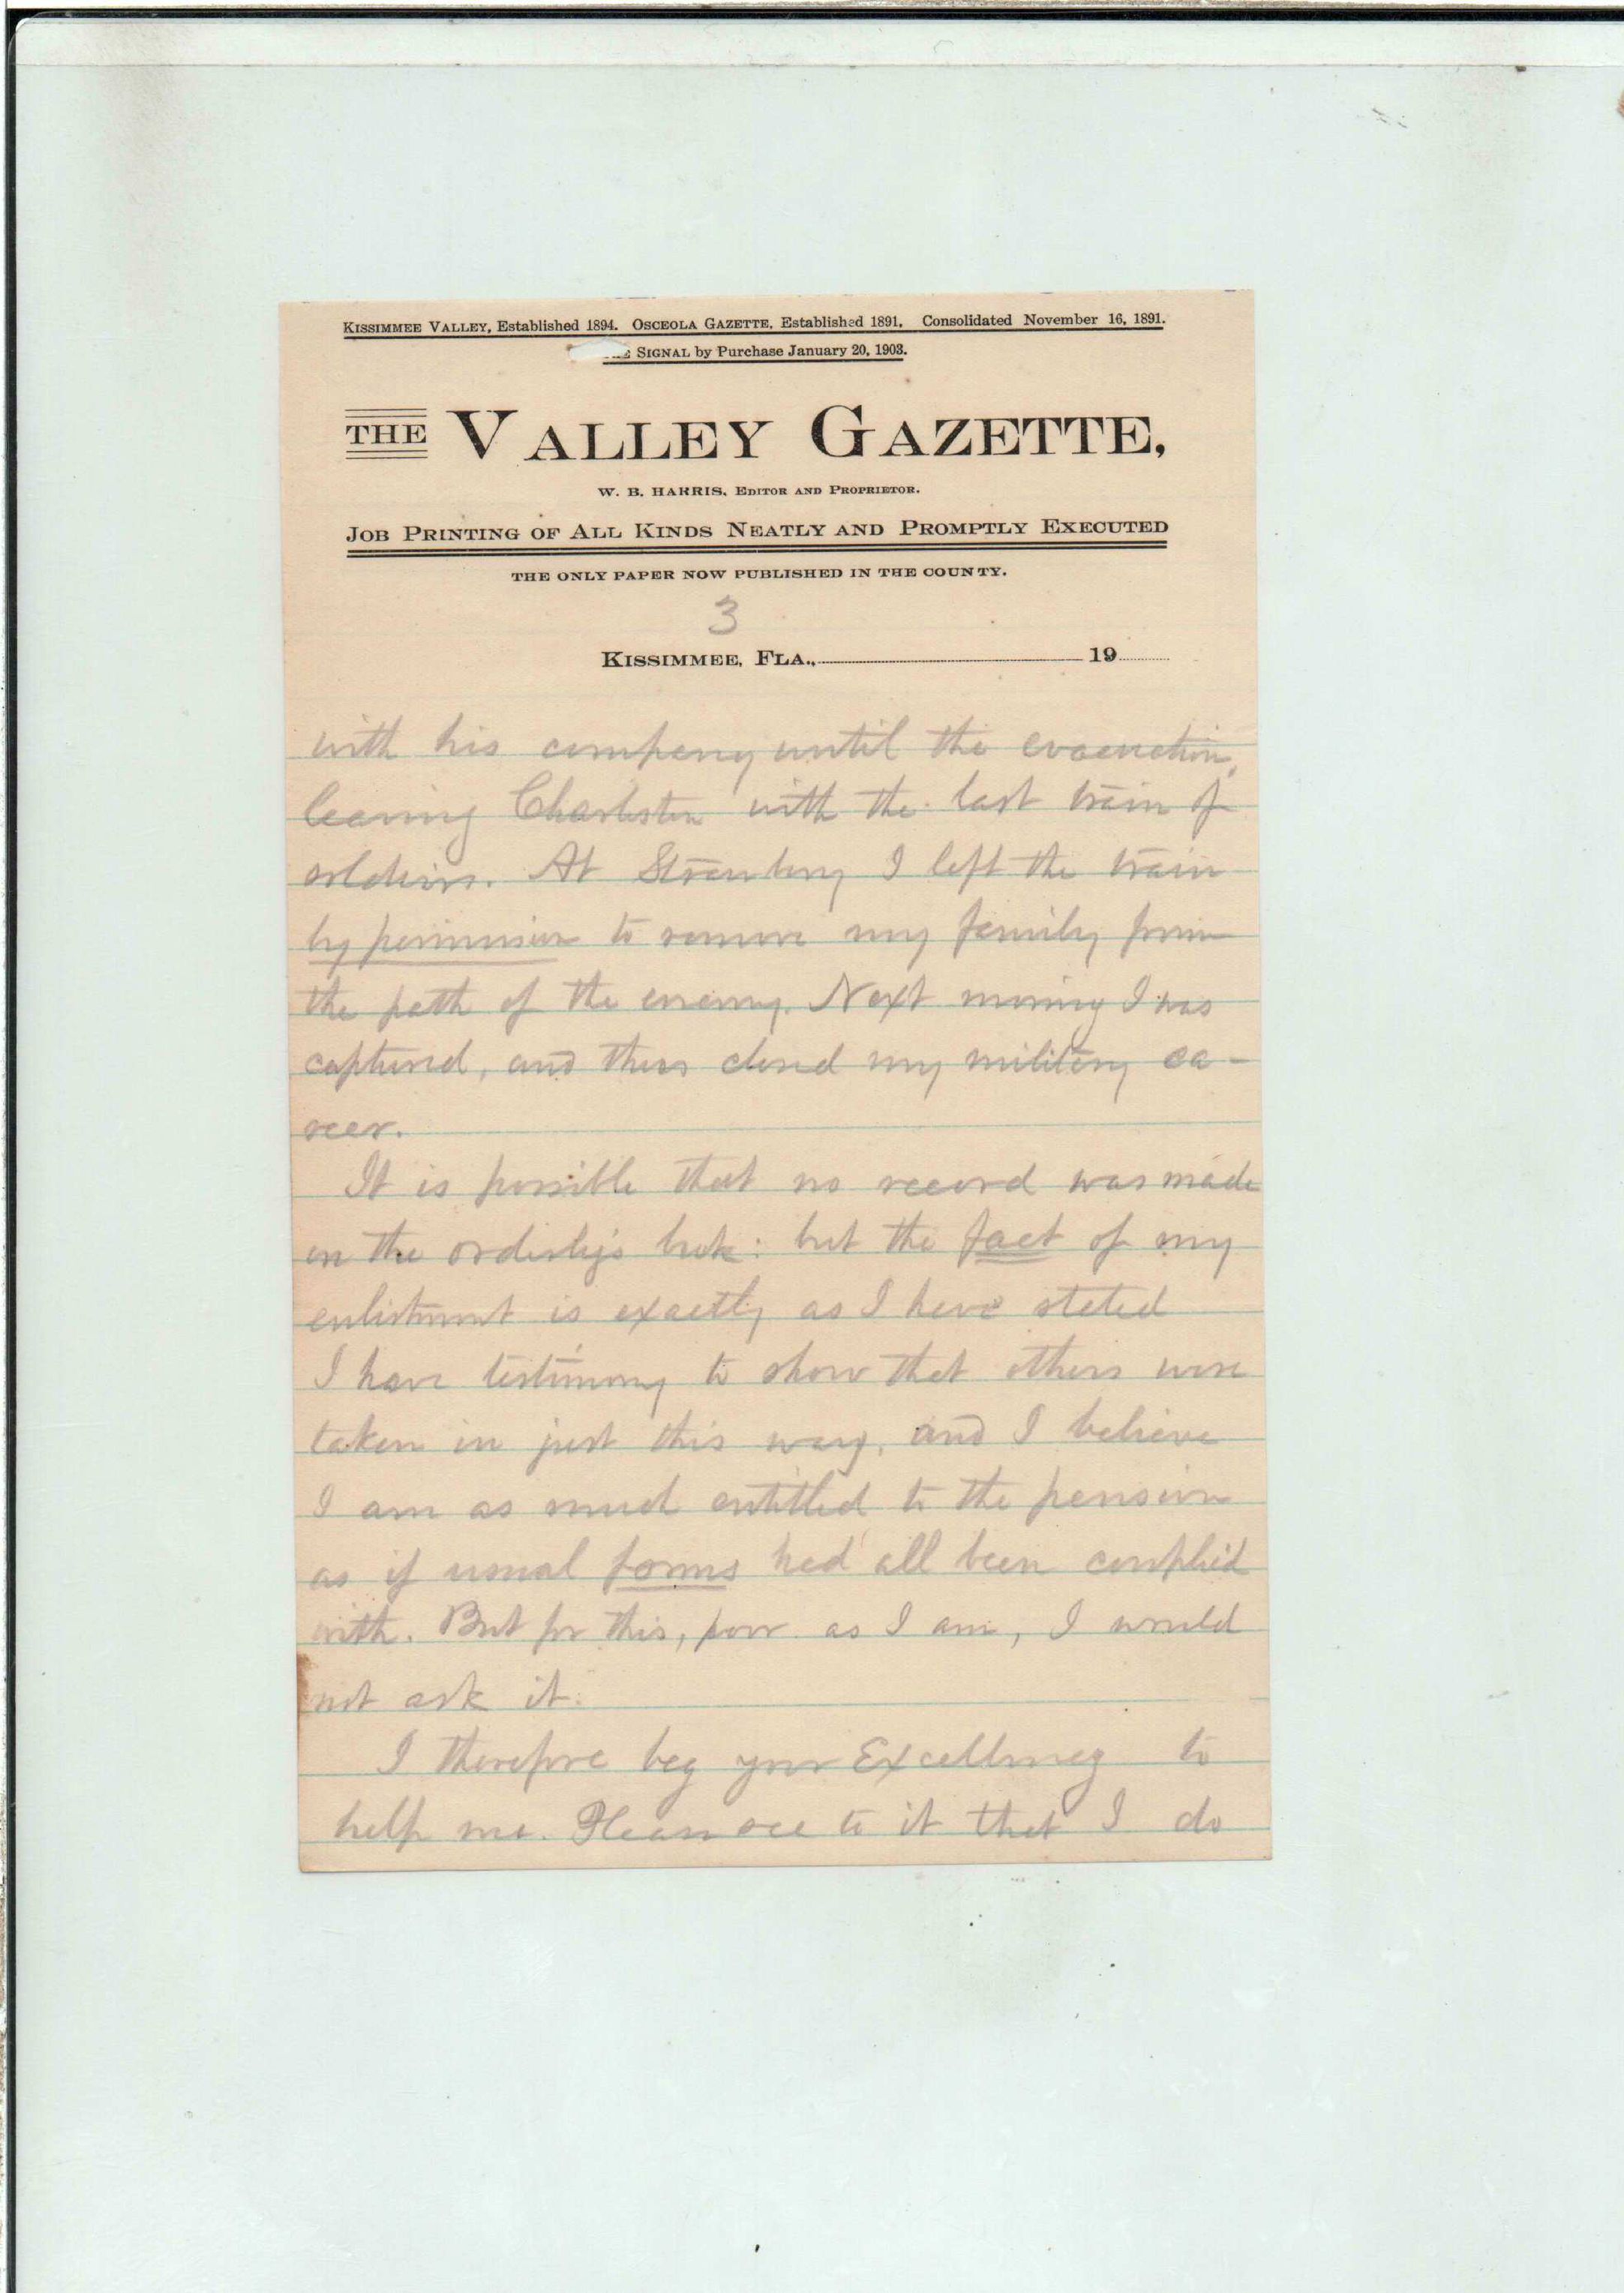 KISSIMMEE VALLEY, Established 1894. OSCEOLA GAZETTE, Established 1891, Consolidated November 16, 1891.
SIGNAL by Purchase January 20, 1903.
THE VALLEY GAZETTE,
W. B. HARRIS, EDITOR AND PROPRIETOR.
JOB PRINTING OF ALL KINDS NEATLY AND PROMPTLY EXECUTED
THE ONLY PAPER NOW PUBLISHED IN THE COUNTY.
3
KISSIMMEE, FLA., 19
with his company until the evacuation,
leaving Charleston with the last train of
soldiers. At I left the train
by permission to remove my family from
the path of the enemy. Next morning I was
captured, and thus closed my military ca-
reer.
It is possible that no record was made
on the orderly's book: but the fact of my
enlistment is exactly as I have stated
I have testimony to show that others were
taken in just this way, and I believe
I am as much entitled to the pension
as if usual forms had all been complied
with. But for this, poor as I am, I would
not ask it.
I therefore beg your Excellency to
help me. Please see to it that I do